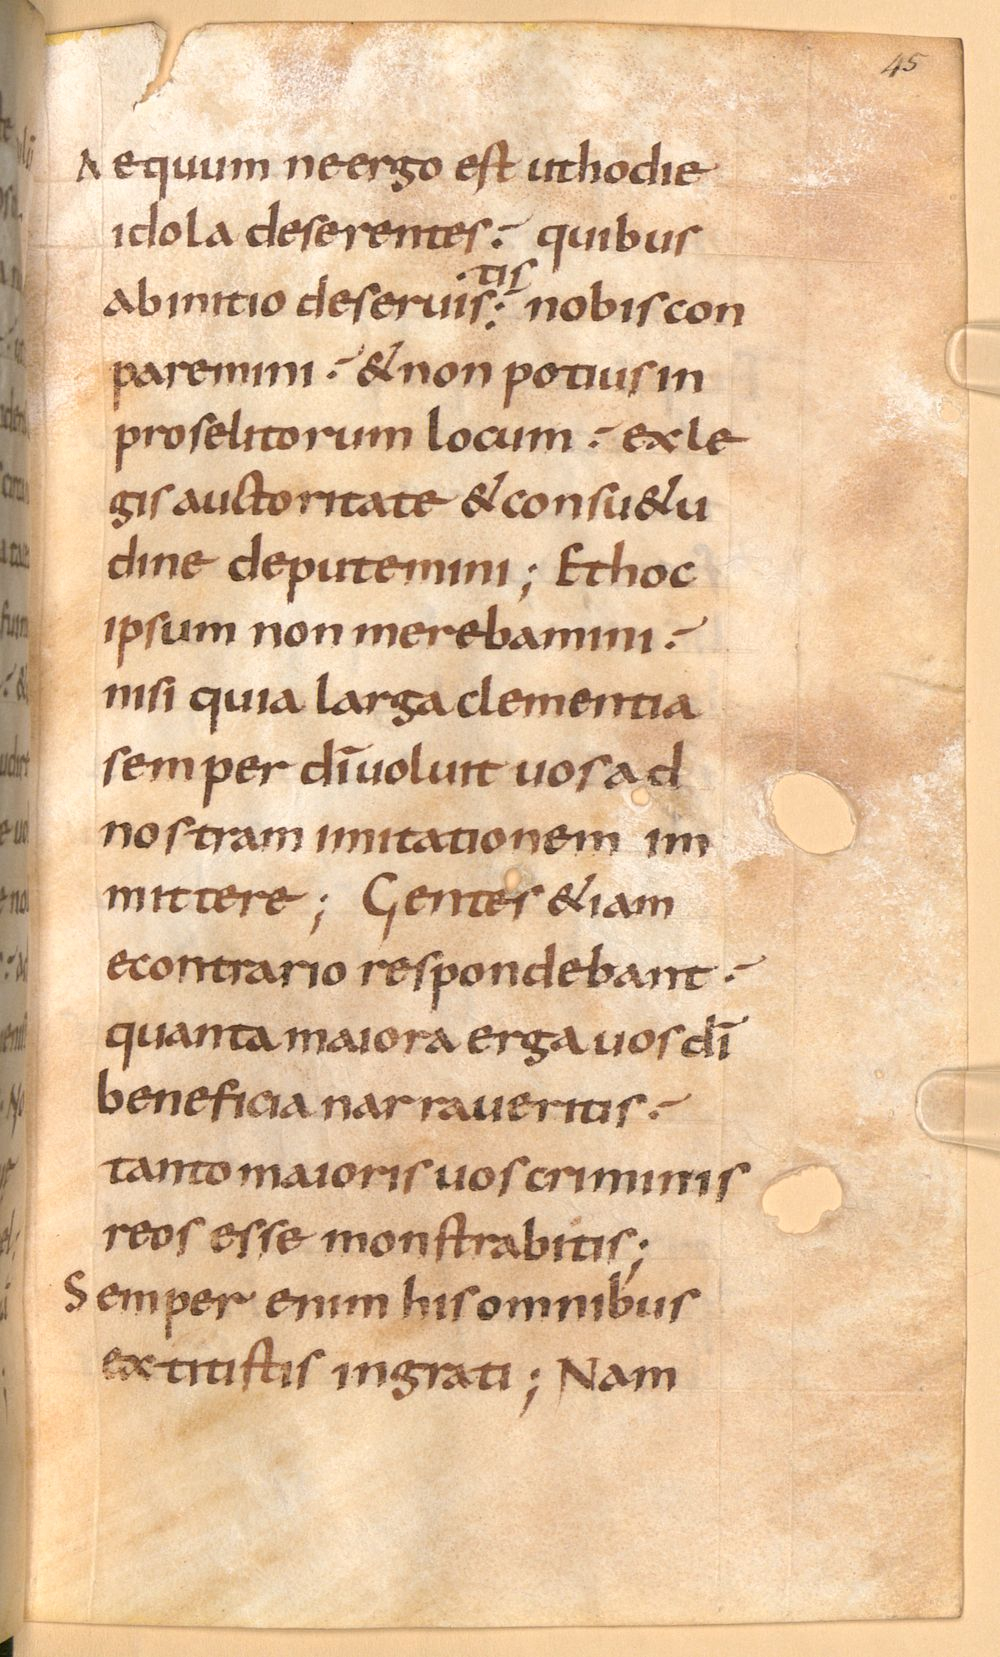 45
Aequum neergo est uthodie
idola deserentes · quibus
tis
abinitio deseruis · nobis con
paremini · & non potius in
proselitorum locum · ex le
gis auctoritate & consu&u
dine deputemini ; Et hoc
ipsum non merebamini ·
nisi quia larga clementia
semper dī uoluit uos ad
nostram imitationem im
mittere ; Gentes &iam
econtrario respondebant ·
quanta maiora erga uos dī
beneficia narraueritis ·
tanto maioris uos criminis
reos esse monstrabitis ;
Semper enim his omnibus
extitistis ingrati ; Nam